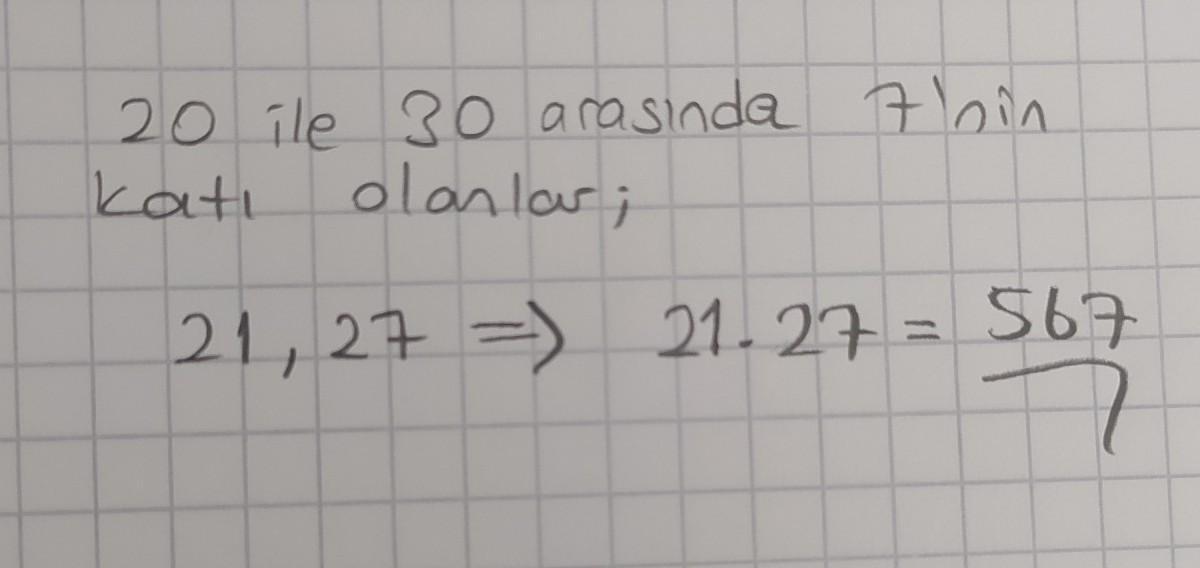 20 ile 30 arasında 7'nin
katı olanlar;
21, 27 => 21.27 = 567